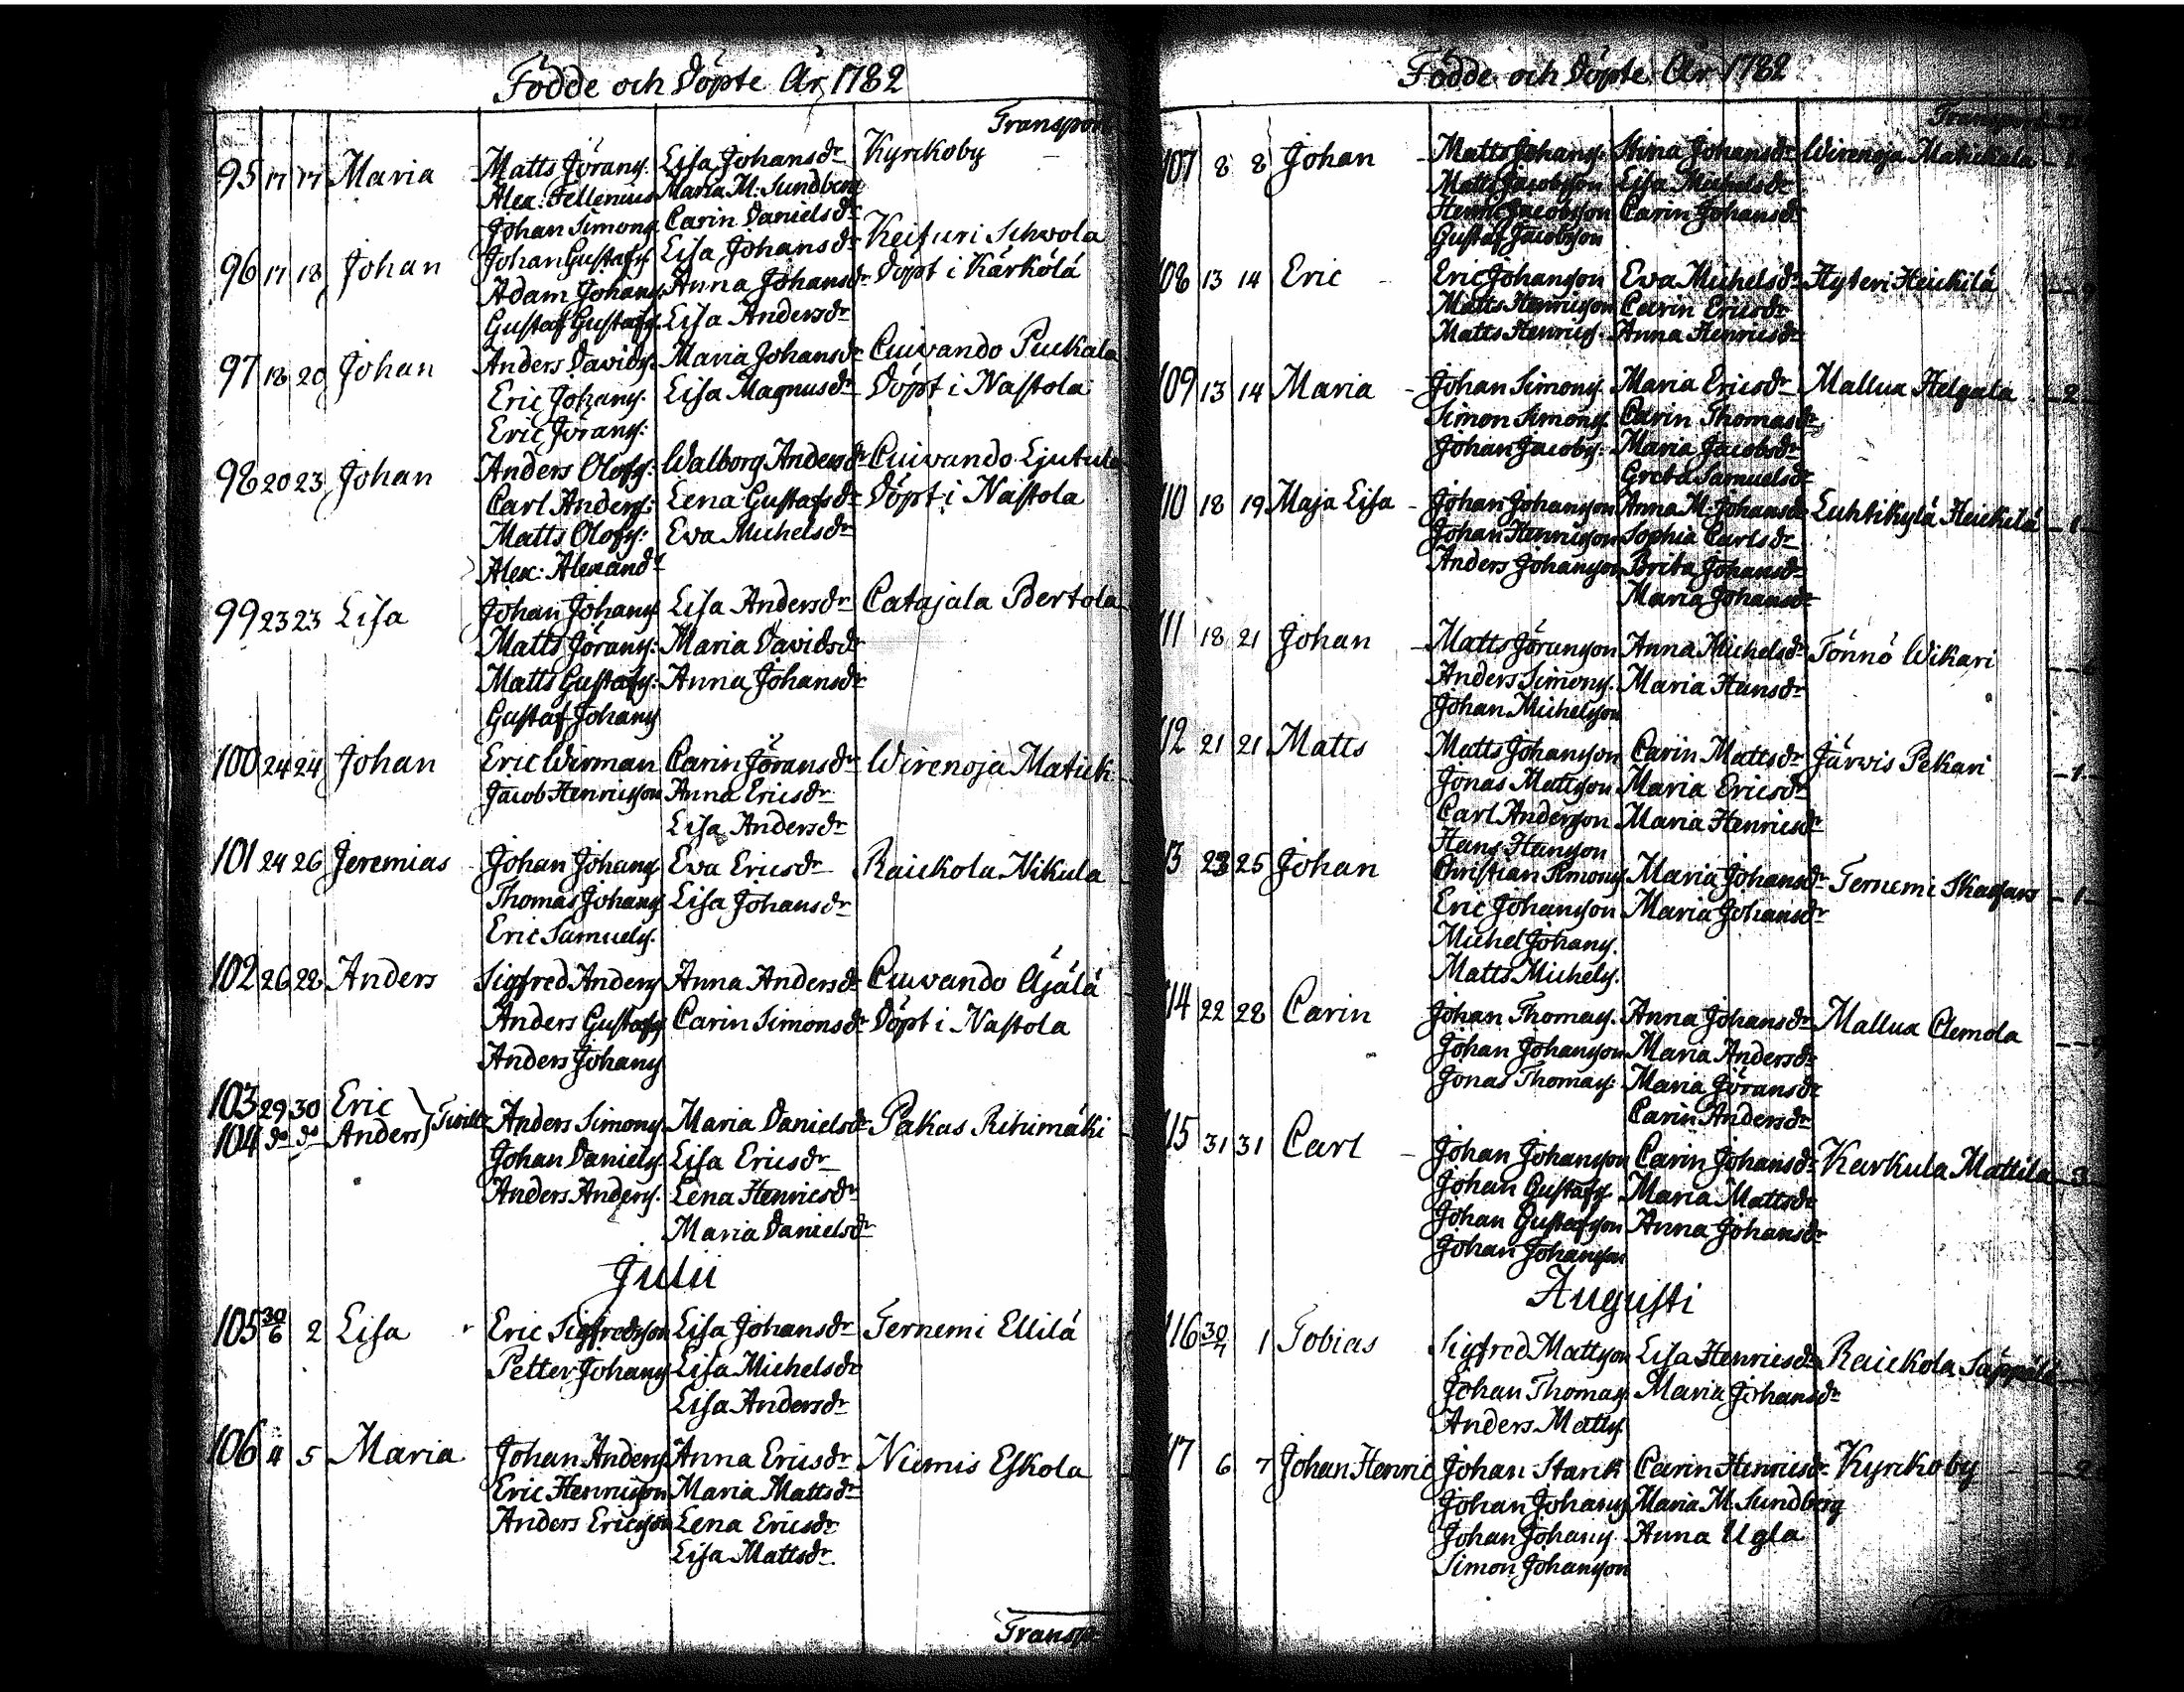 Födde och Döpte År 1782
Transport
95 17 17 Maria Matts Jörans. Lisa Johansdr Kyrckoby
Alex: Fellenius Maria M: Sundberg
Johan Simons Carin Danielsdr
96 17 18 Johan Johan Gustafs. Lisa Johansdr Keituri Schvola
Adam Johans. Anna Johansdr Döpt i Kärkölä
Gustaf Gustafs. Lisa Andersdr
97 18 20 Johan Anders Davids. Maria Johansdr Cuivando Puckala
Eric Johans. Lisa Magnusdr Döpt i Nastola
Eric Jörans:
98 20 23 Johan Anders Olofs: Walborg Andersdr Cuivando
Carl Anders: Lena Gustafsdr Döpt i Nastola
Matts Olofs: Eva Michelsdr
Alex: Alexandr
99 23 23 Lisa Johan Johans Lisa Andersdr Catajala Bertola
Matts Jörans: Maria Davidsdr
Matts Gustafs: Anna Johansdr
Gustaf Johans
100 24 24 Johan Eric Wirman Carin Jöransdr Wirenoja Matuk
Jacob Henricsson Anna Ericsdr
Lisa Andersdr
101 24 26 Jeremias Johan Johans Eva Ericsdr Raickola Nikula
Thomas Johans Lisa Johansdr
Eric Samuels.
102 26 28 Anders Sigfred Anders Anna Andersdr Cuivando Äjälä
Anders Gustafs Carin Simonsdr Döpt i Nastola
Anders Johans
103 29 30 Eric
104 do do Anders } Anders Simons Maria Danielsdr Pakas Rihimäki
Johan Daniels. Lisa Ericsdr
Anders Anders. Lena Henricsdr
Maria Danielsdr
Julii
105 30/6 2 Lisa Eric Sigfredsson Lisa Johansdr Ternemi Ellilä
Petter Johans Lisa Michelsdr
Lisa Andersdr
106 4 5 Maria Johan Anders Anna Ericsdr Niemis Eskola
Eric Henricsson Maria Mattsdr
Anders Ericsson Lena Ericsdr
Lisa Mattsdr
Transp
Födde och Döpte År 1782
Transport
107 8 8 Johan Matts Johans. Stina Johansdr Wirenoja Matuckala
Matts Jacobsson Lisa Michelsdr
Henric Jacobsson Carin Johansdr
Gustaf Jacobsson
108 13 14 Eric Eric Johansson Ewa Michelsdr Hyteri Heickilä
Matts Henricsson Carin Ericsdr
Matts Henrics. Anna Henricsdr
109 13 14 Maria Johan Simons. Maria Ericsdr Mallua Helgala 2
Simon Simons. Carin Thomasdr
Johan Jacobs. Maria Jacobsdr
Greta Samuelsdr
110 18 19 Maja Lisa Johan Johansson Anna M. Johansdr Luhtikylä Heickilä 1
Johan Henricsson Sophia Carlsdr
Anders Johansson Brita Johansdr
Maria Johansdr
111 18 21 Johan Matts Göransson Anna Michelsdr Tönnö Wikari
Anders Simons. Maria Hansdr
Johan Michelsson
112 21 21 Matts Matts Johansson Carin Mattsdr Järwis Pekari 1
Jonas Mattsson Maria Ericsdr
Carl Andersson Maria Henricsdr
Hans Hansson
113 23 25 Johan Christian Simons Maria Johansdr Ternemi Skagars 1
Eric Johansson Maria Johansdr
Michel Johans.
Matts Michels.
114 22 28 Carin Johan Thomas. Anna Johansdr Mallua Clemola
Johan Johansson Maria Andersdr
Jonas Thomas: Maria Jöransdr
Carin Andersdr
115 31 31 Carl Johan Johansson Carin Johansdr Karkula Mattila 3
Johan Gustafs Maria Mattsdr
Johan Gustafsson Anna Johansdr
Johan Johansson
Augusti
116 30/7 1 Tobias Sigfred Mattsson Lisa Henricsdr Raickola Säppälä
Johan Thomas Maria Johansdr
Anders Matts
117 6 7 Johan Henric Johan Starck Carin Henricsdr Kyrckoby 2
Johan Johans Maria M Sundberg
Johan Johans. Anna Ugla
Simon Johansson